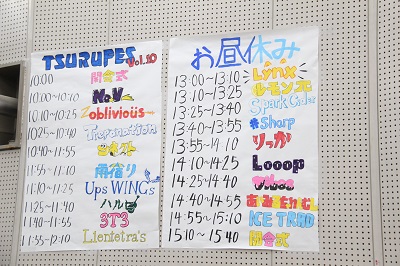 TSURUFES Vol.20
10:00 開会式
10:00~10:10
10:10~10:25 oblivious
10:25~10:40
10:40~11:55
11:55~11:10 雨宿り
11:10~11:25 Ups WINGs
11:25~11:40 ハルヒ
11:40~11:55 3T3
11:55~12:10 Lientetra's
お昼休み
13:00~13:10 Lynx
13:10~13:25 レモン工
13:25~13:40 Spark Cider
13:40~13:55 #Sharp
13:55~14:10 りっか
14:10~14:25 Looop
14:25~14:40
14:40~14:55
14:55~15:10 ICE TRAD
15:10~15:40 閉会式